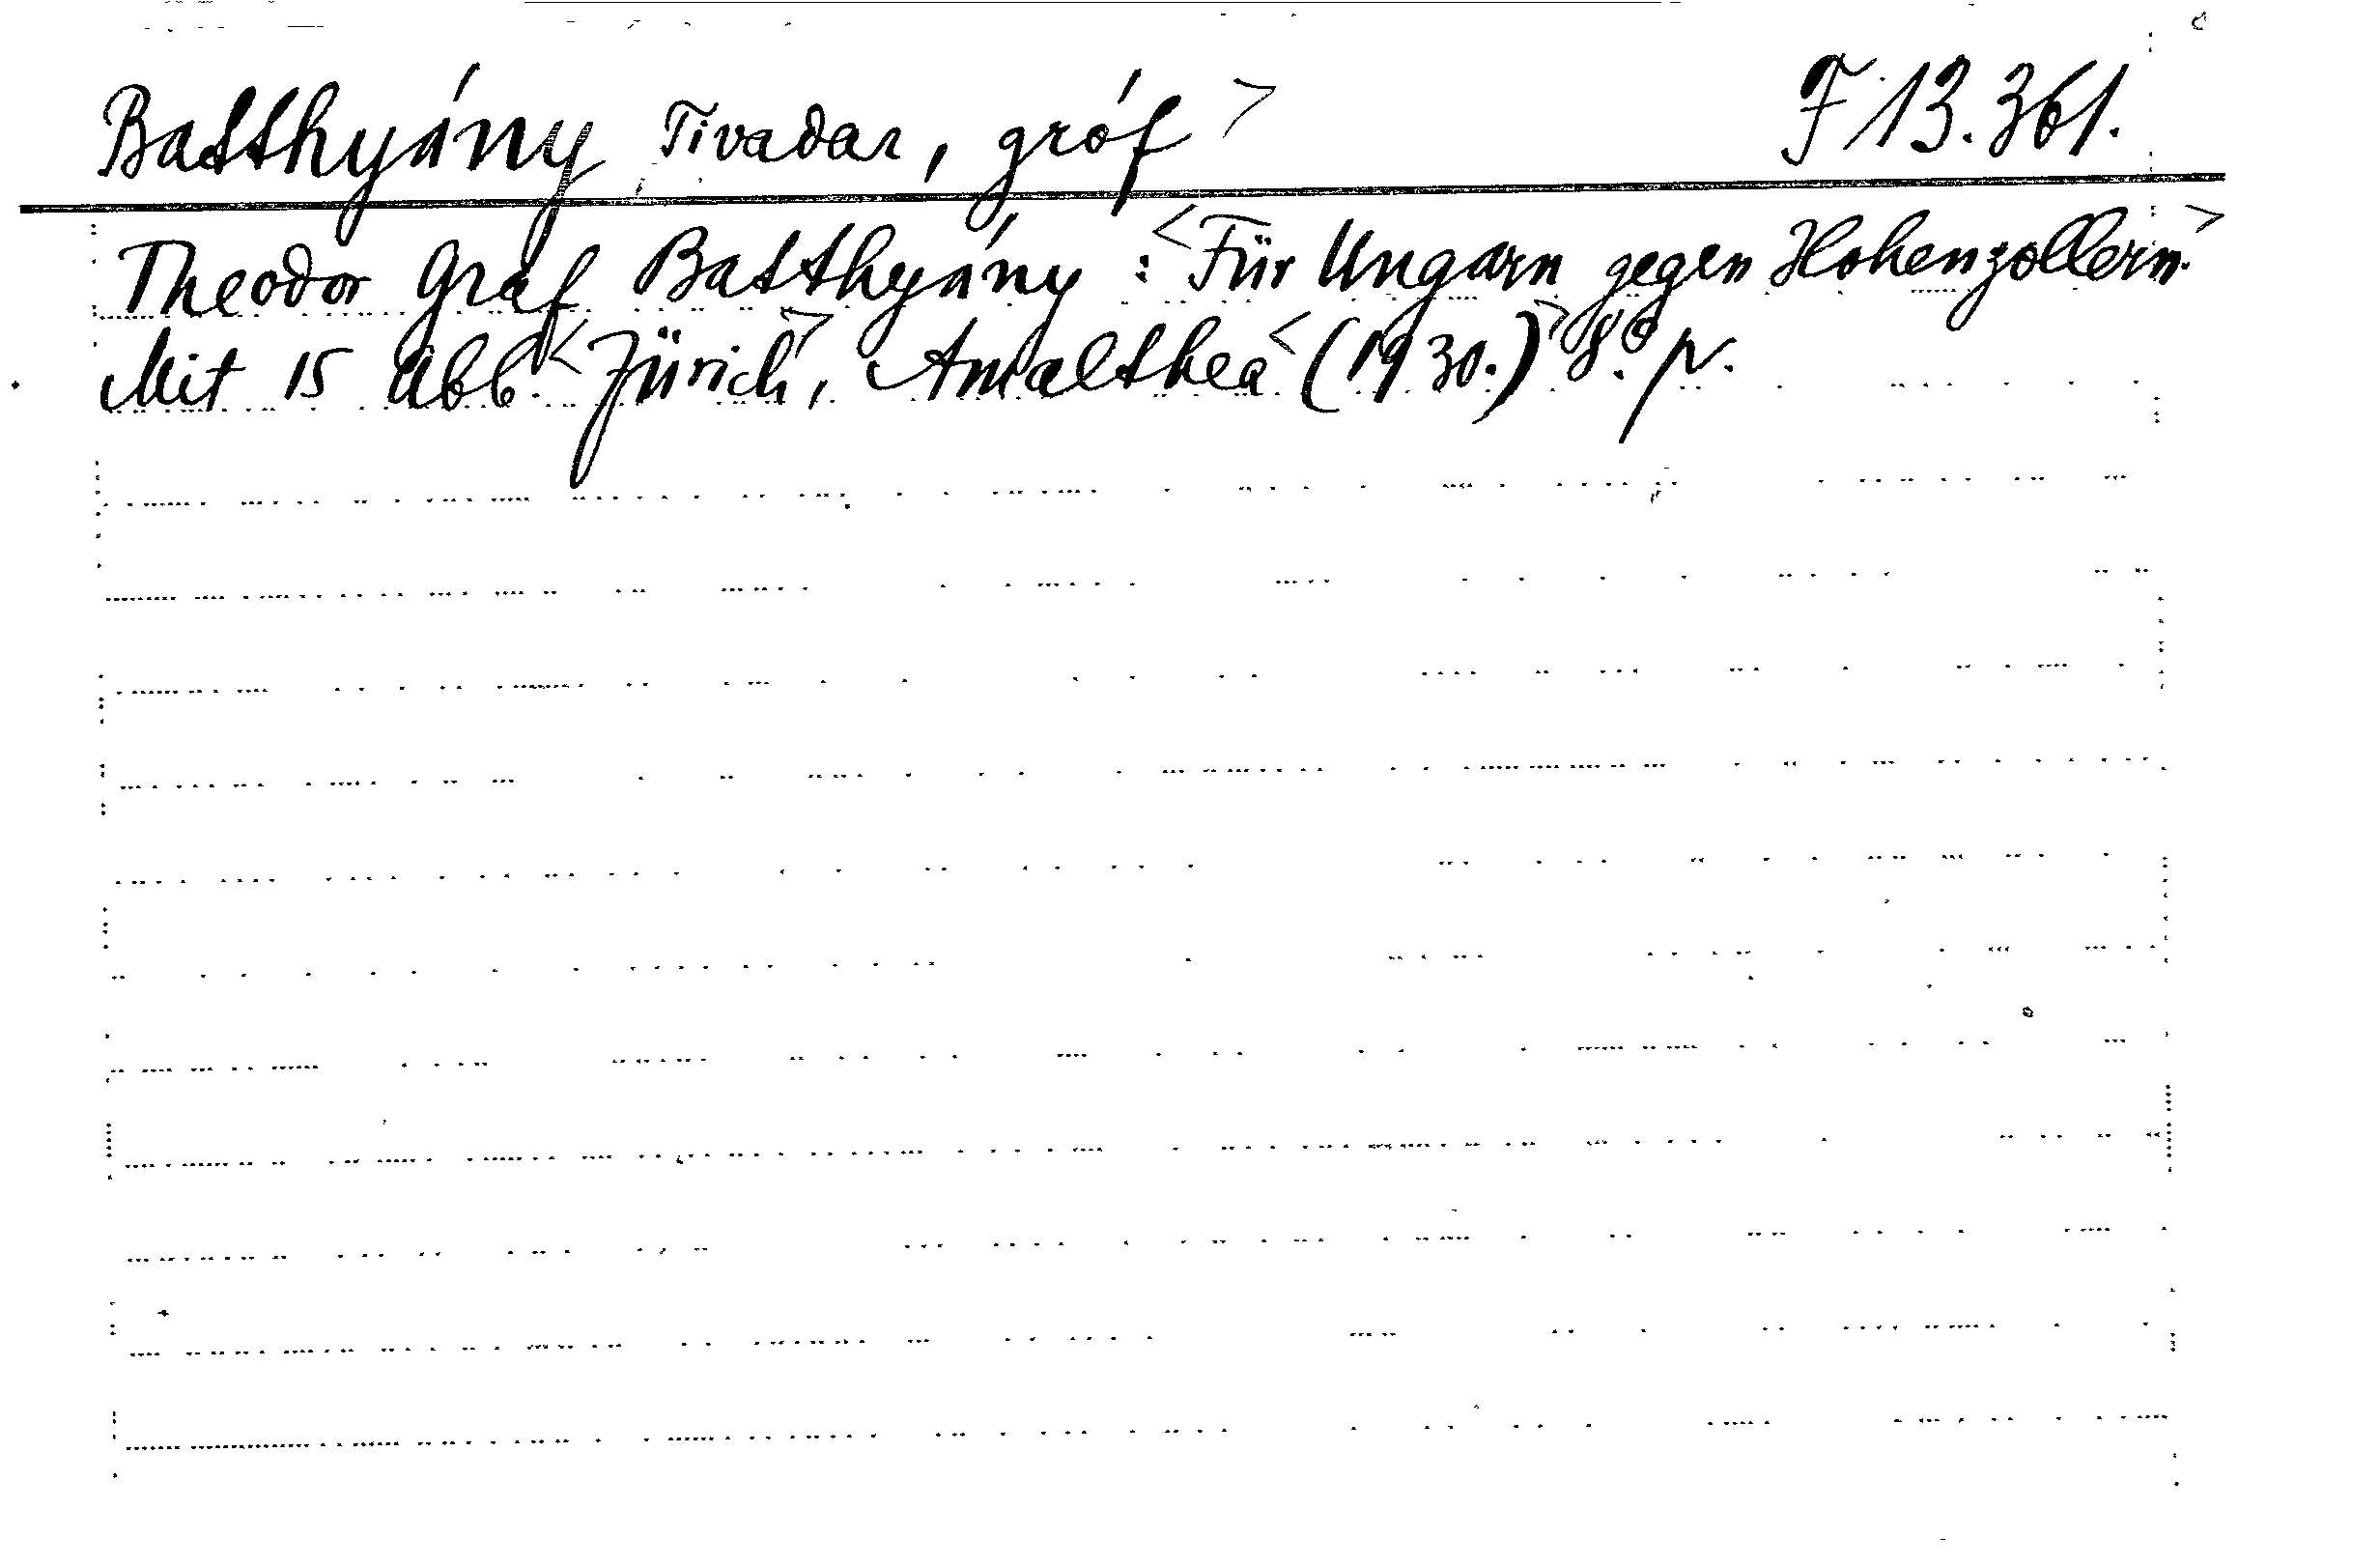 Batthyány Tivadar, gróf > F 13.361.
Theodor Graf Batthyány : <Für Ungarn gegen Hohenzollern.>
Mit 15 Abb. <Zürich>, Amalthea <(1930.)> 8° p.